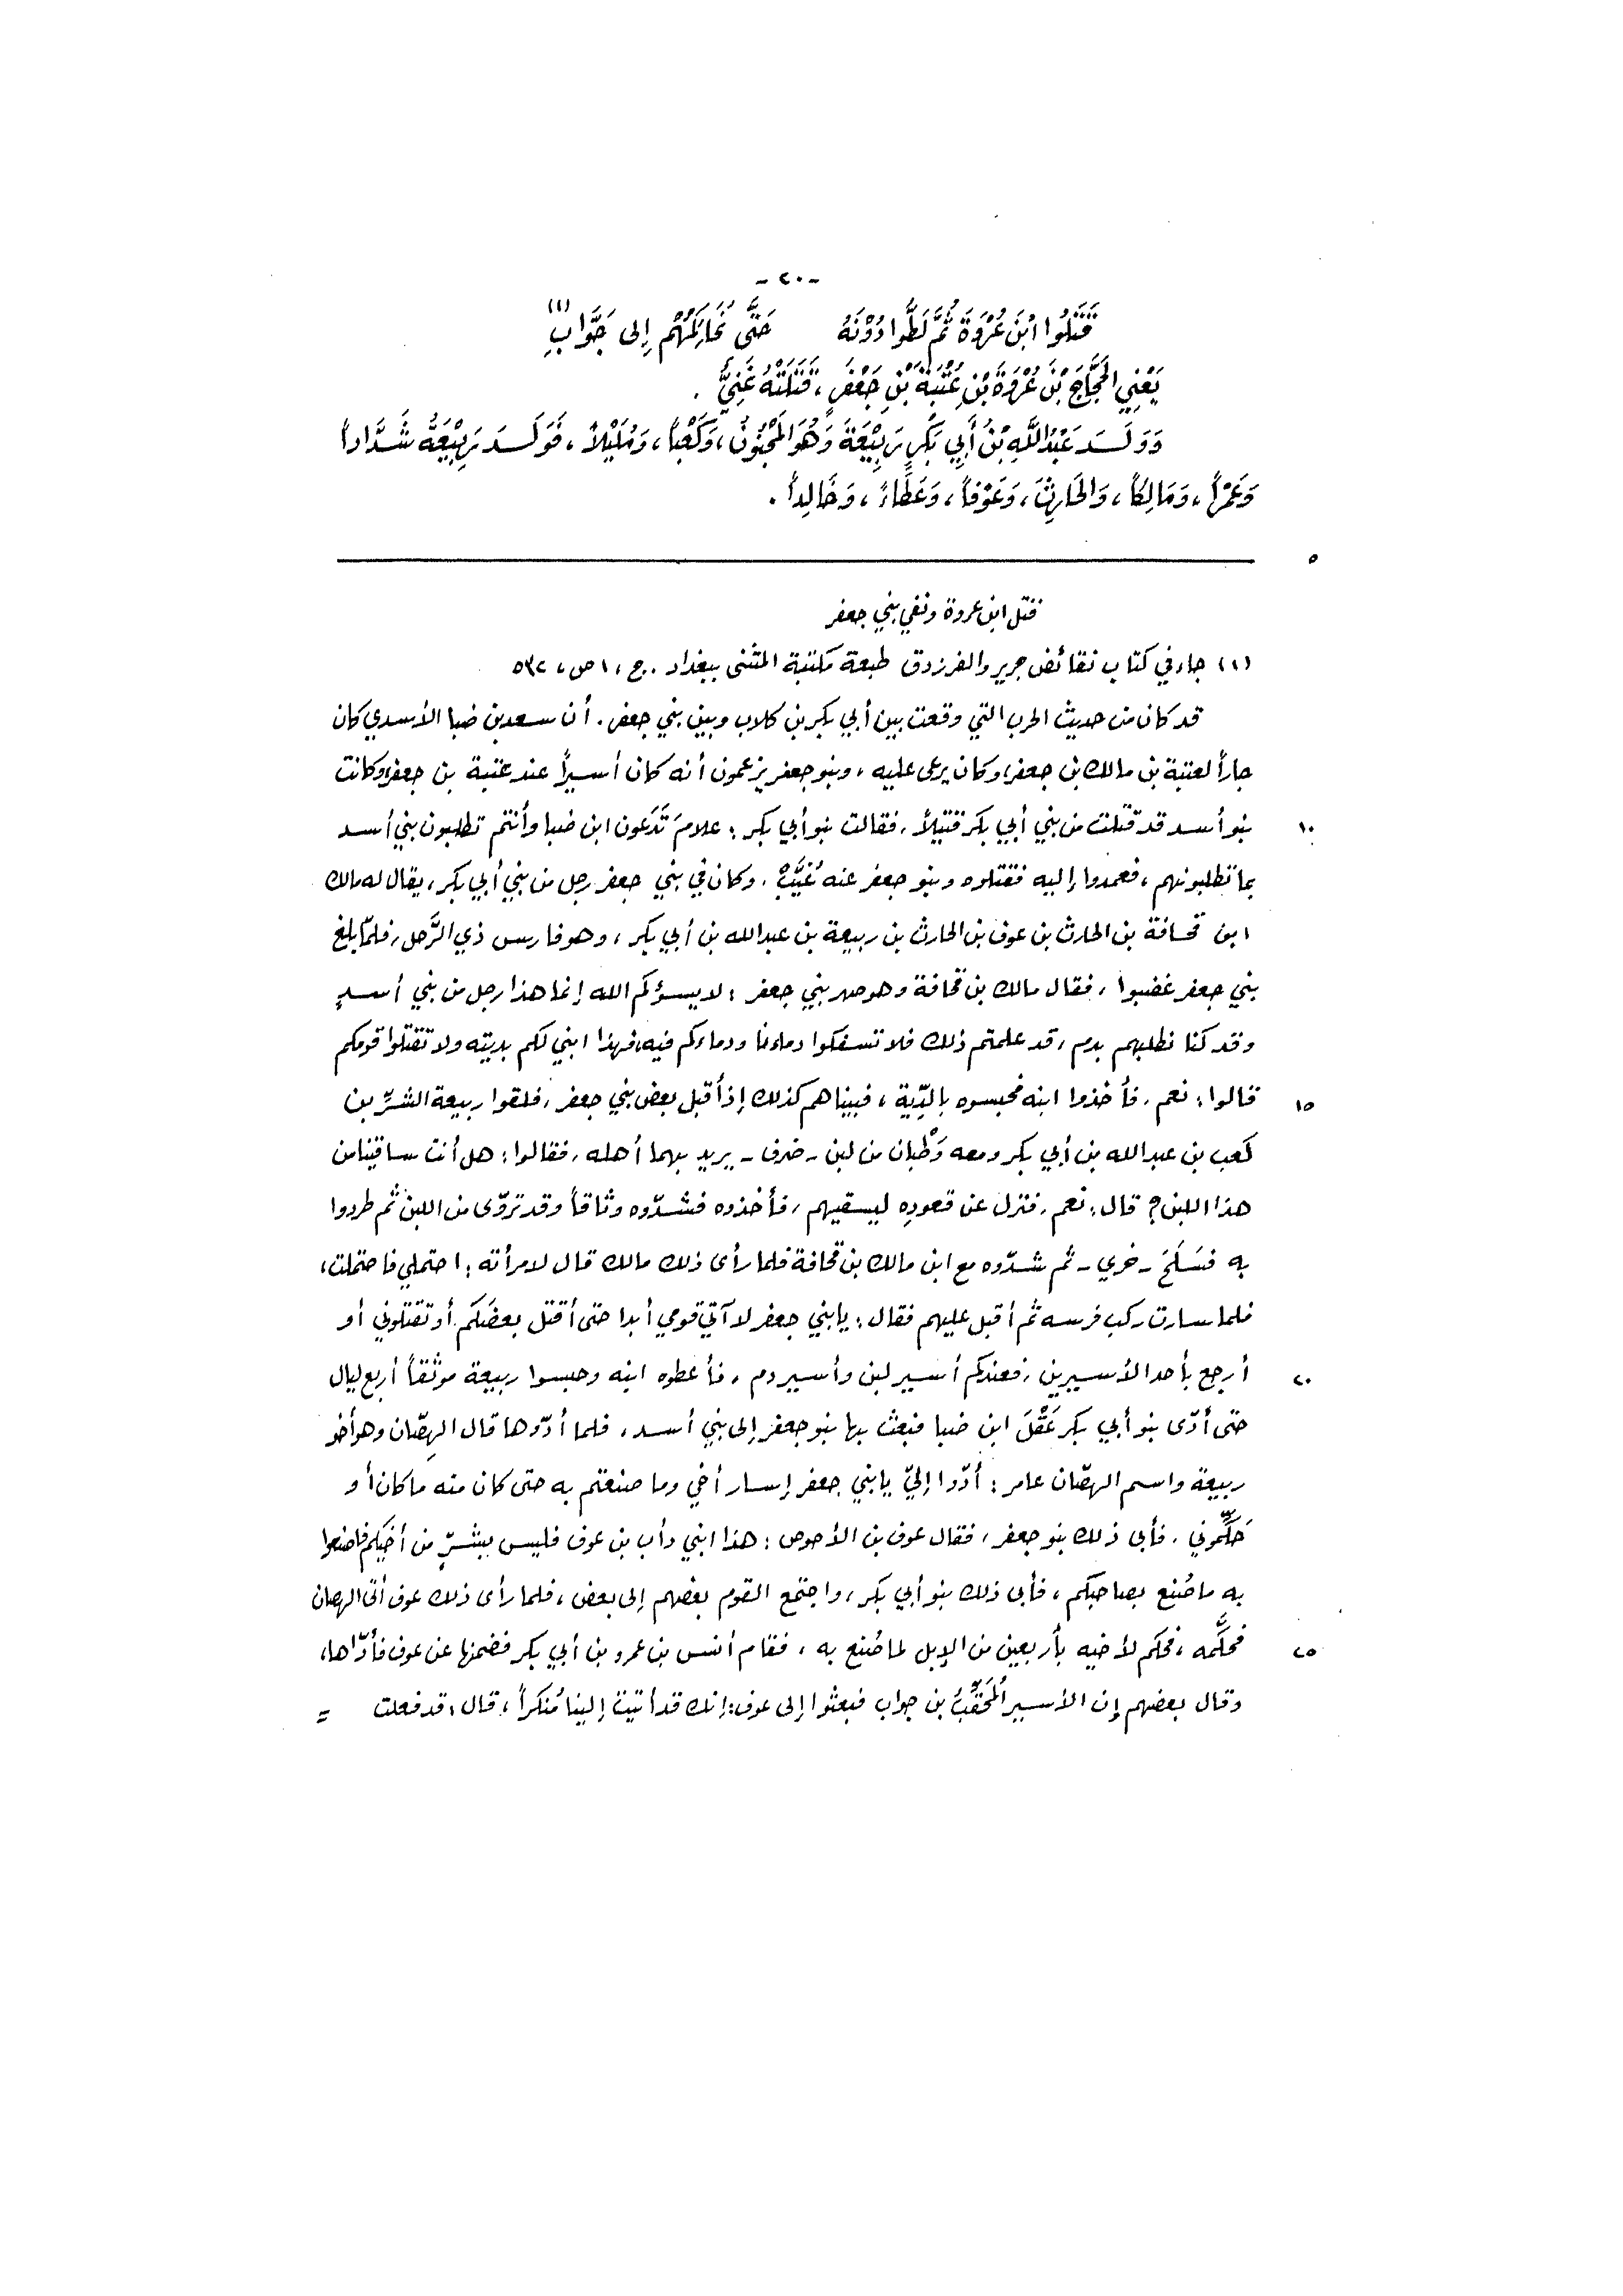 -٢٠-
قَتَلُوا ابْنَ عُرْوَةَ ثُمَّ لَطُّوا دُوْنَهُ حَتَّى نُحَاكِمَهُمْ إِلى جَوَّابِ (١)
يَعْنِي الحَجَّاجَ بْنَ عُرْوَةَ بْنِ عُتْبَةَ بْنِ جَعْفَرٍ، قَتَلَتْهُ غَنِيُّ.
وَوَلَـدَ عَبْدُ اللَّهِ بْنُ أَبِي بَكْرٍ رَبِيْعَةَ وَهُوَ المَجْنُونُ، وَكَعْباً، وَمُلَيْلاً، فَوَلَـدَ رَبِيْعَةُ شَدَّاداً
وَعَمْراً، وَمَالِكاً، وَالحَارِثَ، وَعَوْفاً، وَعَطَاءً، وَخَالِداً.
٥
قتل ابن عروة ونفي بني جعفر
(١) جاء في كتاب نقائض جرير والفرزدق طبعة مكتبة المثنى ببغداد. ج، ١ ص، ٥٣٢
قد كان من حديث الحرب التي وقعت بين أبي بكر بن كلاب وبين بني جعفر. أن سعد بن ضبا الأسدي كان
جاراً لعتبة بن مالك بن جعفر، وكان يرعى عليه، وبنو جعفر يزعمون أنه كان أسيراً عند عتبة بن جعفر، وكانت
١٠ بنو أسد قد قتلت من بني أبي بكر قتيلاً، فقالت بنو أبي بكر: علامَ تَدَعون ابن ضبا وأنتم تطلبون بني أسد
بما تطلبونهم، فعمدوا إليه فقتلوه وبنو جعفر عنه غُيَّبٌ. وكان في بني جعفر رجل من بني أبي بكر، يقال له مالك
ابن قحافة بن الحارث بن عوف بن الحارث بن ربيعة بن عبد الله بن أبي بكر، وهو فارس ذي الرَّحل، فلمّا بلغ
بني جعفر غضبوا، فقال مالك بن قحافة وهو صهر بني جعفر: لا يسؤكم الله إنما هذا رجل من بني أسدٍ
وقد كنا نطلبهم بدم، قد علمتم ذلك فلا تسفكوا دماءنا ودماءكم فيه، فهذا ابني لكم بديته ولا تقتلوا قومكم
١٥ قالوا: نعم. فأخذوا ابنه فحبسوه بالدّية، فبينا هم كذلك إذ أقبل بعض بني جعفر، فلقوا ربيعة الشرّ بن
كعب بن عبد الله بن أبي بكر ومعه وَطْبان من لبن - ضرف - يريد بهما أهله، فقالوا: هل أنت ساقينا من
هذا اللبن؟ قال: نعم. فنزل عن قعودِه ليسقيهم، فأخذوه فشدّوه وثاقاً وقد تروّى من اللبن ثم طردوا
به فسَلَحَ - خري - ثم شدّوه مع ابن مالك بن قحافة فلما رأى ذلك مالك قال لامرأته: احتملي فاحتملت،
فلما سارت ركب فرسه ثم أقبل عليهم فقال: يا بني جعفر لا آتي قومي أبدا حتى أقتل بعضَكم أو تقتلوني أو
٢٠ أرجع بأحد الأسيرين، فعندكم أسير لبن وأسير دم، فأعطوه ابنه وحبسوا ربيعة موثَقاً أربع ليال
حتى أدّى بنو أبي بكر عَقْلَ ابن ضبا فبعث بها بنو جعفر إلى بني أسد، فلما أدّوها قال الهِصّان وهو أخو
ربيعة واسم الهصّان عامر: أدّوا إليّ يا بني جعفر إسار أخي وما صنعتم به حتى كان منه ما كان أو
حَكِّموني. فأبى ذلك بنو جعفر، فقال عوف بن الأحوص: هذا ابني دأب بن عوف فليس بشرّ من أخيكم فاصنعوا
به ما صُنع بصاحبكم، فأبى ذلك بنو أبي بكر، واجتمع القوم بعضهم إلى بعض، فلما رأى ذلك عوف أتى الهصان
٢٥ فحكَّمه، فحكم لأخيه بأربعين من الإبل لما صُنع به، فقام أنس بن عمرو بن أبي بكر فضمنها عن عوف فأدّاها،
وقال بعضهم إن الأسير المُحَقَّبُ بن جواب فبعثوا إلى عوف: إنك قد أتيت إلينا مُنكراً، قال: قد فعلت =